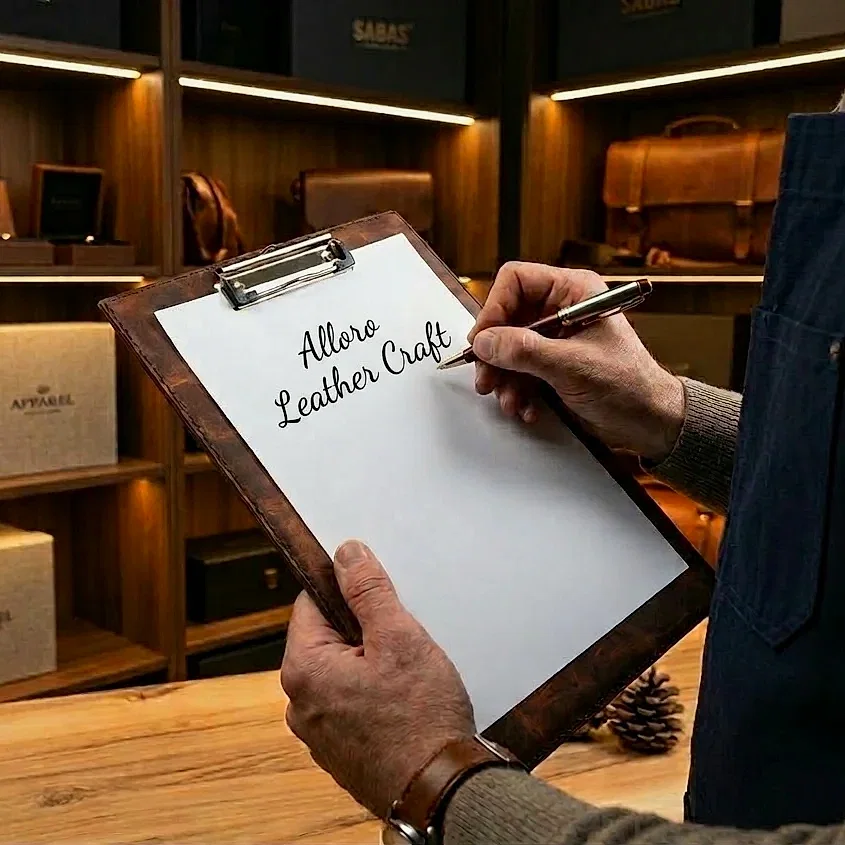 SABAS
SABAS
Alloro
Leather Craft
APPAREL